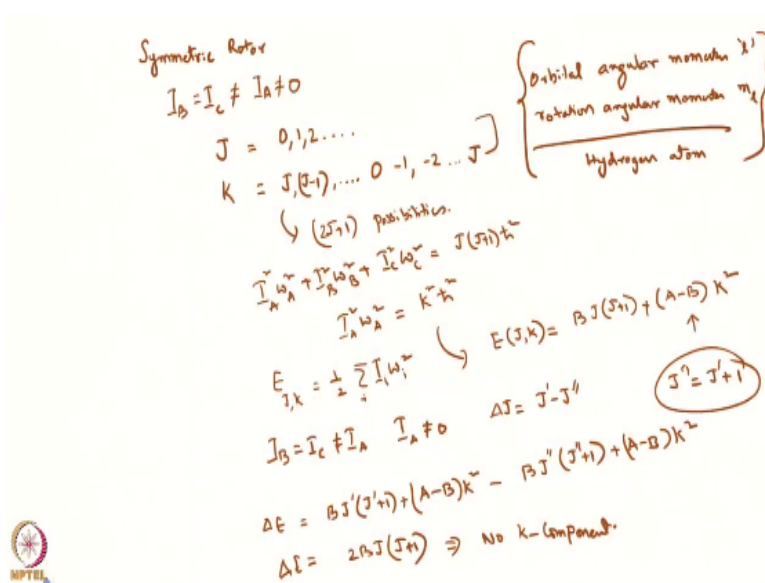 Symmetric Rotor
I_B = I_C ≠ I_A ≠ 0
J = 0, 1, 2 ....
K = J, (J-1), .... 0 -1, -2 ... J
(2J+1) possibilities.
{ Orbital angular momentum 'l'
rotation angular momentum m_l
Hydrogen atom }
I_A² ω_A² + I_B² ω_B² + I_C² ω_C² = J(J+1) ħ²
I_A² ω_A² = K² ħ²
E_{J,K} = 1/2 Σ_i I_i ω_i²
E(J,K) = B J(J+1) + (A-B) K²
↑
I_B = I_C ≠ I_A I_A ≠ 0
ΔJ = J' - J''
J'' = J' + 1
ΔE = BJ'(J'+1) + (A-B)K² - BJ''(J''+1) + (A-B)K²
ΔE = 2BJ(J+1) ⇒ No K-Component.
NPTEL